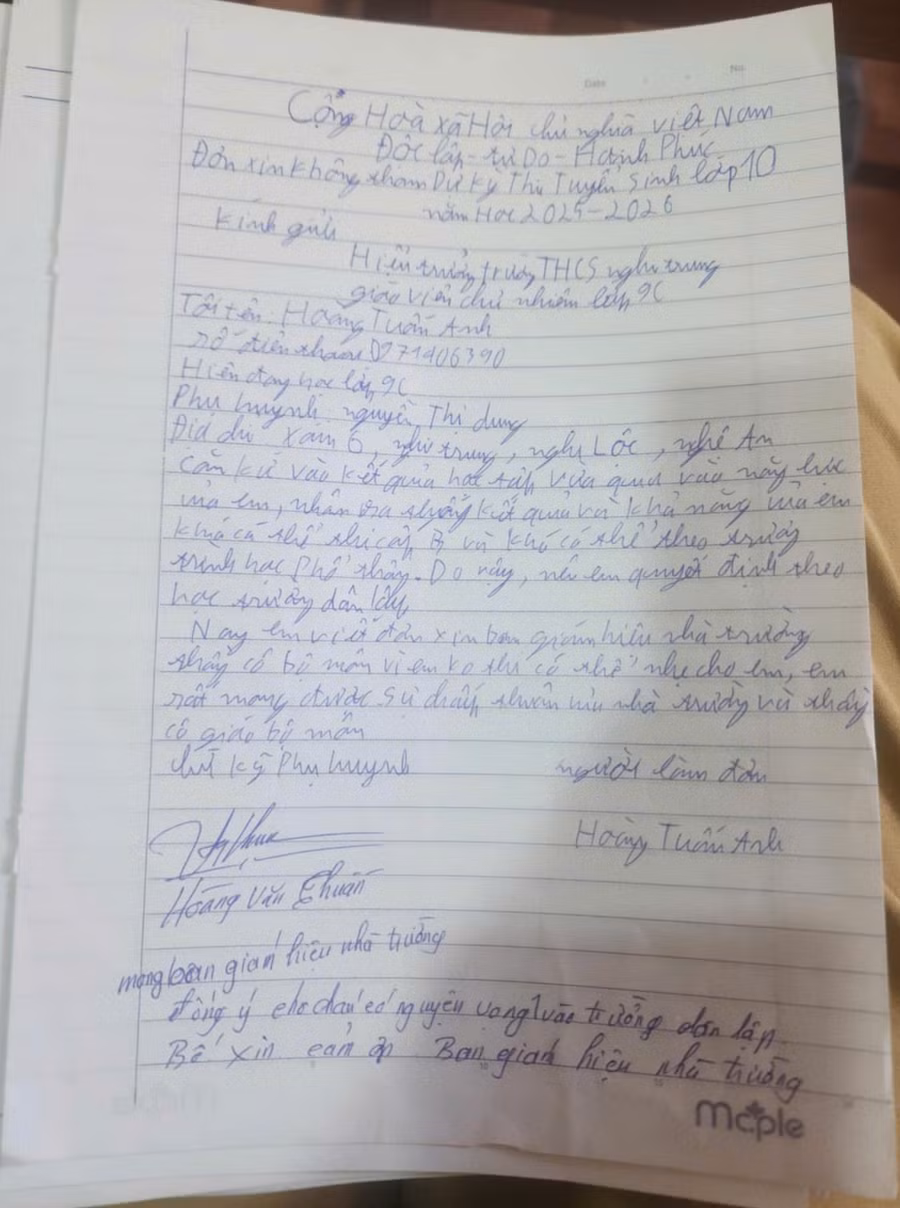 Date No.
Cộng Hoà xã Hội chủ nghĩa việt Nam
Độc lập - tự Do - Hạnh Phúc
Đơn xin không tham Dự kỳ Thi Tuyển Sinh lớp 10
năm Học 2025-2026
Kính gửi
Hiệu trưởng trường THCS nghi trung
giáo viên chủ nhiệm lớp 9C
Tôi tên: Hoàng Tuấn Anh
số điện thoại 0971406390
Hiện đang học lớp 9C
Phụ huynh nguyễn Thị dung
Địa chỉ xóm 6, nghi trung, nghi Lộc, nghệ An
Căn kứ vào kết quả học tập vừa qua và năng lực
của em, nhận thấy kết quả và khả năng của em
khó có thể thi cấp 3 và khó có thể theo trương
trình học phổ thông. Do vậy, nên em quyết định theo
học trường dân lập
Nay em viết đơn xin ban giám hiệu nhà trường
thầy cô bộ môn vì em ko thi có thể nhẹ cho em, em
rất mong được sự chấp thuận của nhà trường và thầy
cô giáo bộ môn
chữ ký phụ huynh người làm đơn
Hoàng Tuấn Anh
Hoàng Văn Chuẩn
mong ban giám hiệu nhà trường
đồng ý cho cháu có nguyện vong 1 vào trường dân lập
Bố xin cảm ơn Ban giám hiệu nhà trường
maple